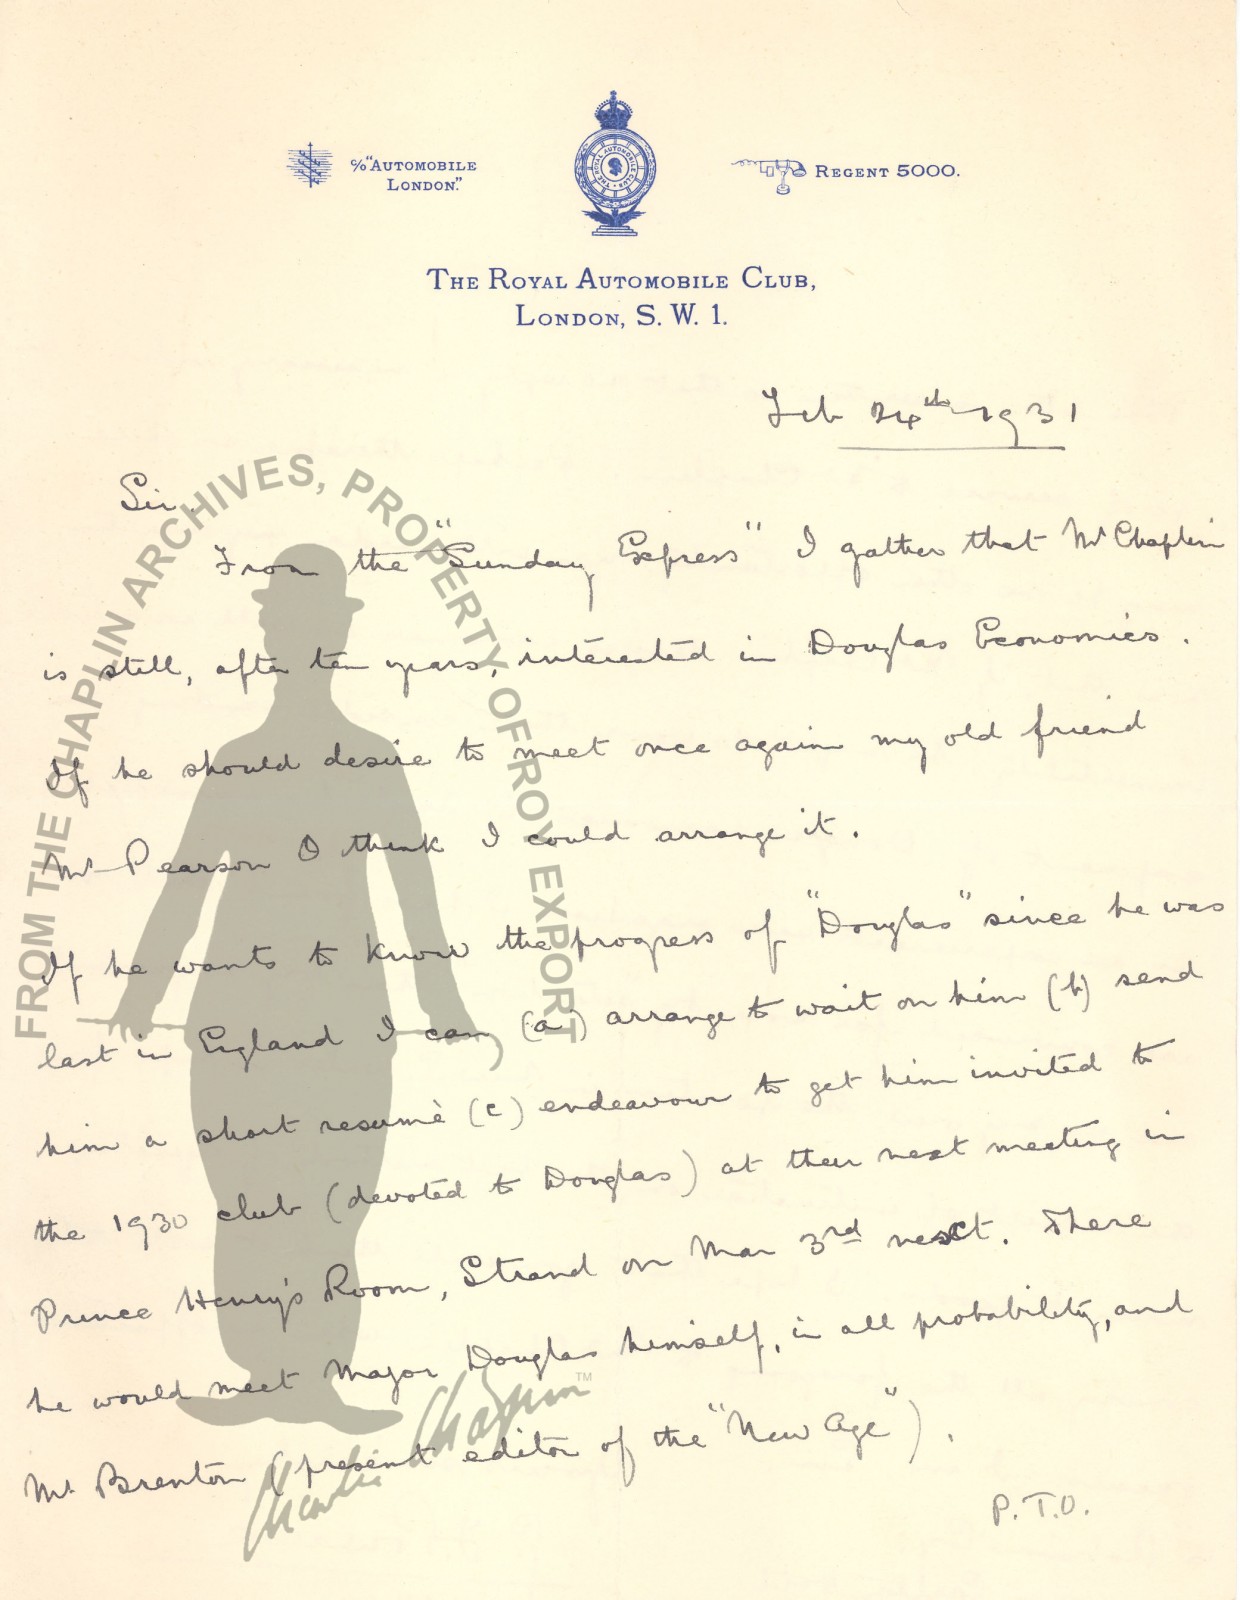 c/o "AUTOMOBILE
LONDON."
THE ROYAL AUTOMOBILE CLUB
REGENT 5000.
THE ROYAL AUTOMOBILE CLUB,
LONDON, S. W. 1.
Feb 24th 1931
Sir.
From the "Sunday Express" I gather that Mr Chaplin
is still, after ten years, interested in Douglas Economics.
If he should desire to meet once again my old friend
Mr Pearson I think I could arrange it.
If he wants to know the progress of "Douglas" since he was
last in England I can (a) arrange to wait on him (b) send
him a short resumé (c) endeavour to get him invited to
the 1930 club (devoted to Douglas) at their next meeting in
Prince Henry's Room, Strand on Mar 3rd next. There
he would meet Major Douglas himself, in all probability, and
Mr Brenton (present editor of the "New Age").
P.T.O.
FROM THE CHAPLIN ARCHIVES, PROPERTY OF ROY EXPORT
Charlie Chaplin™